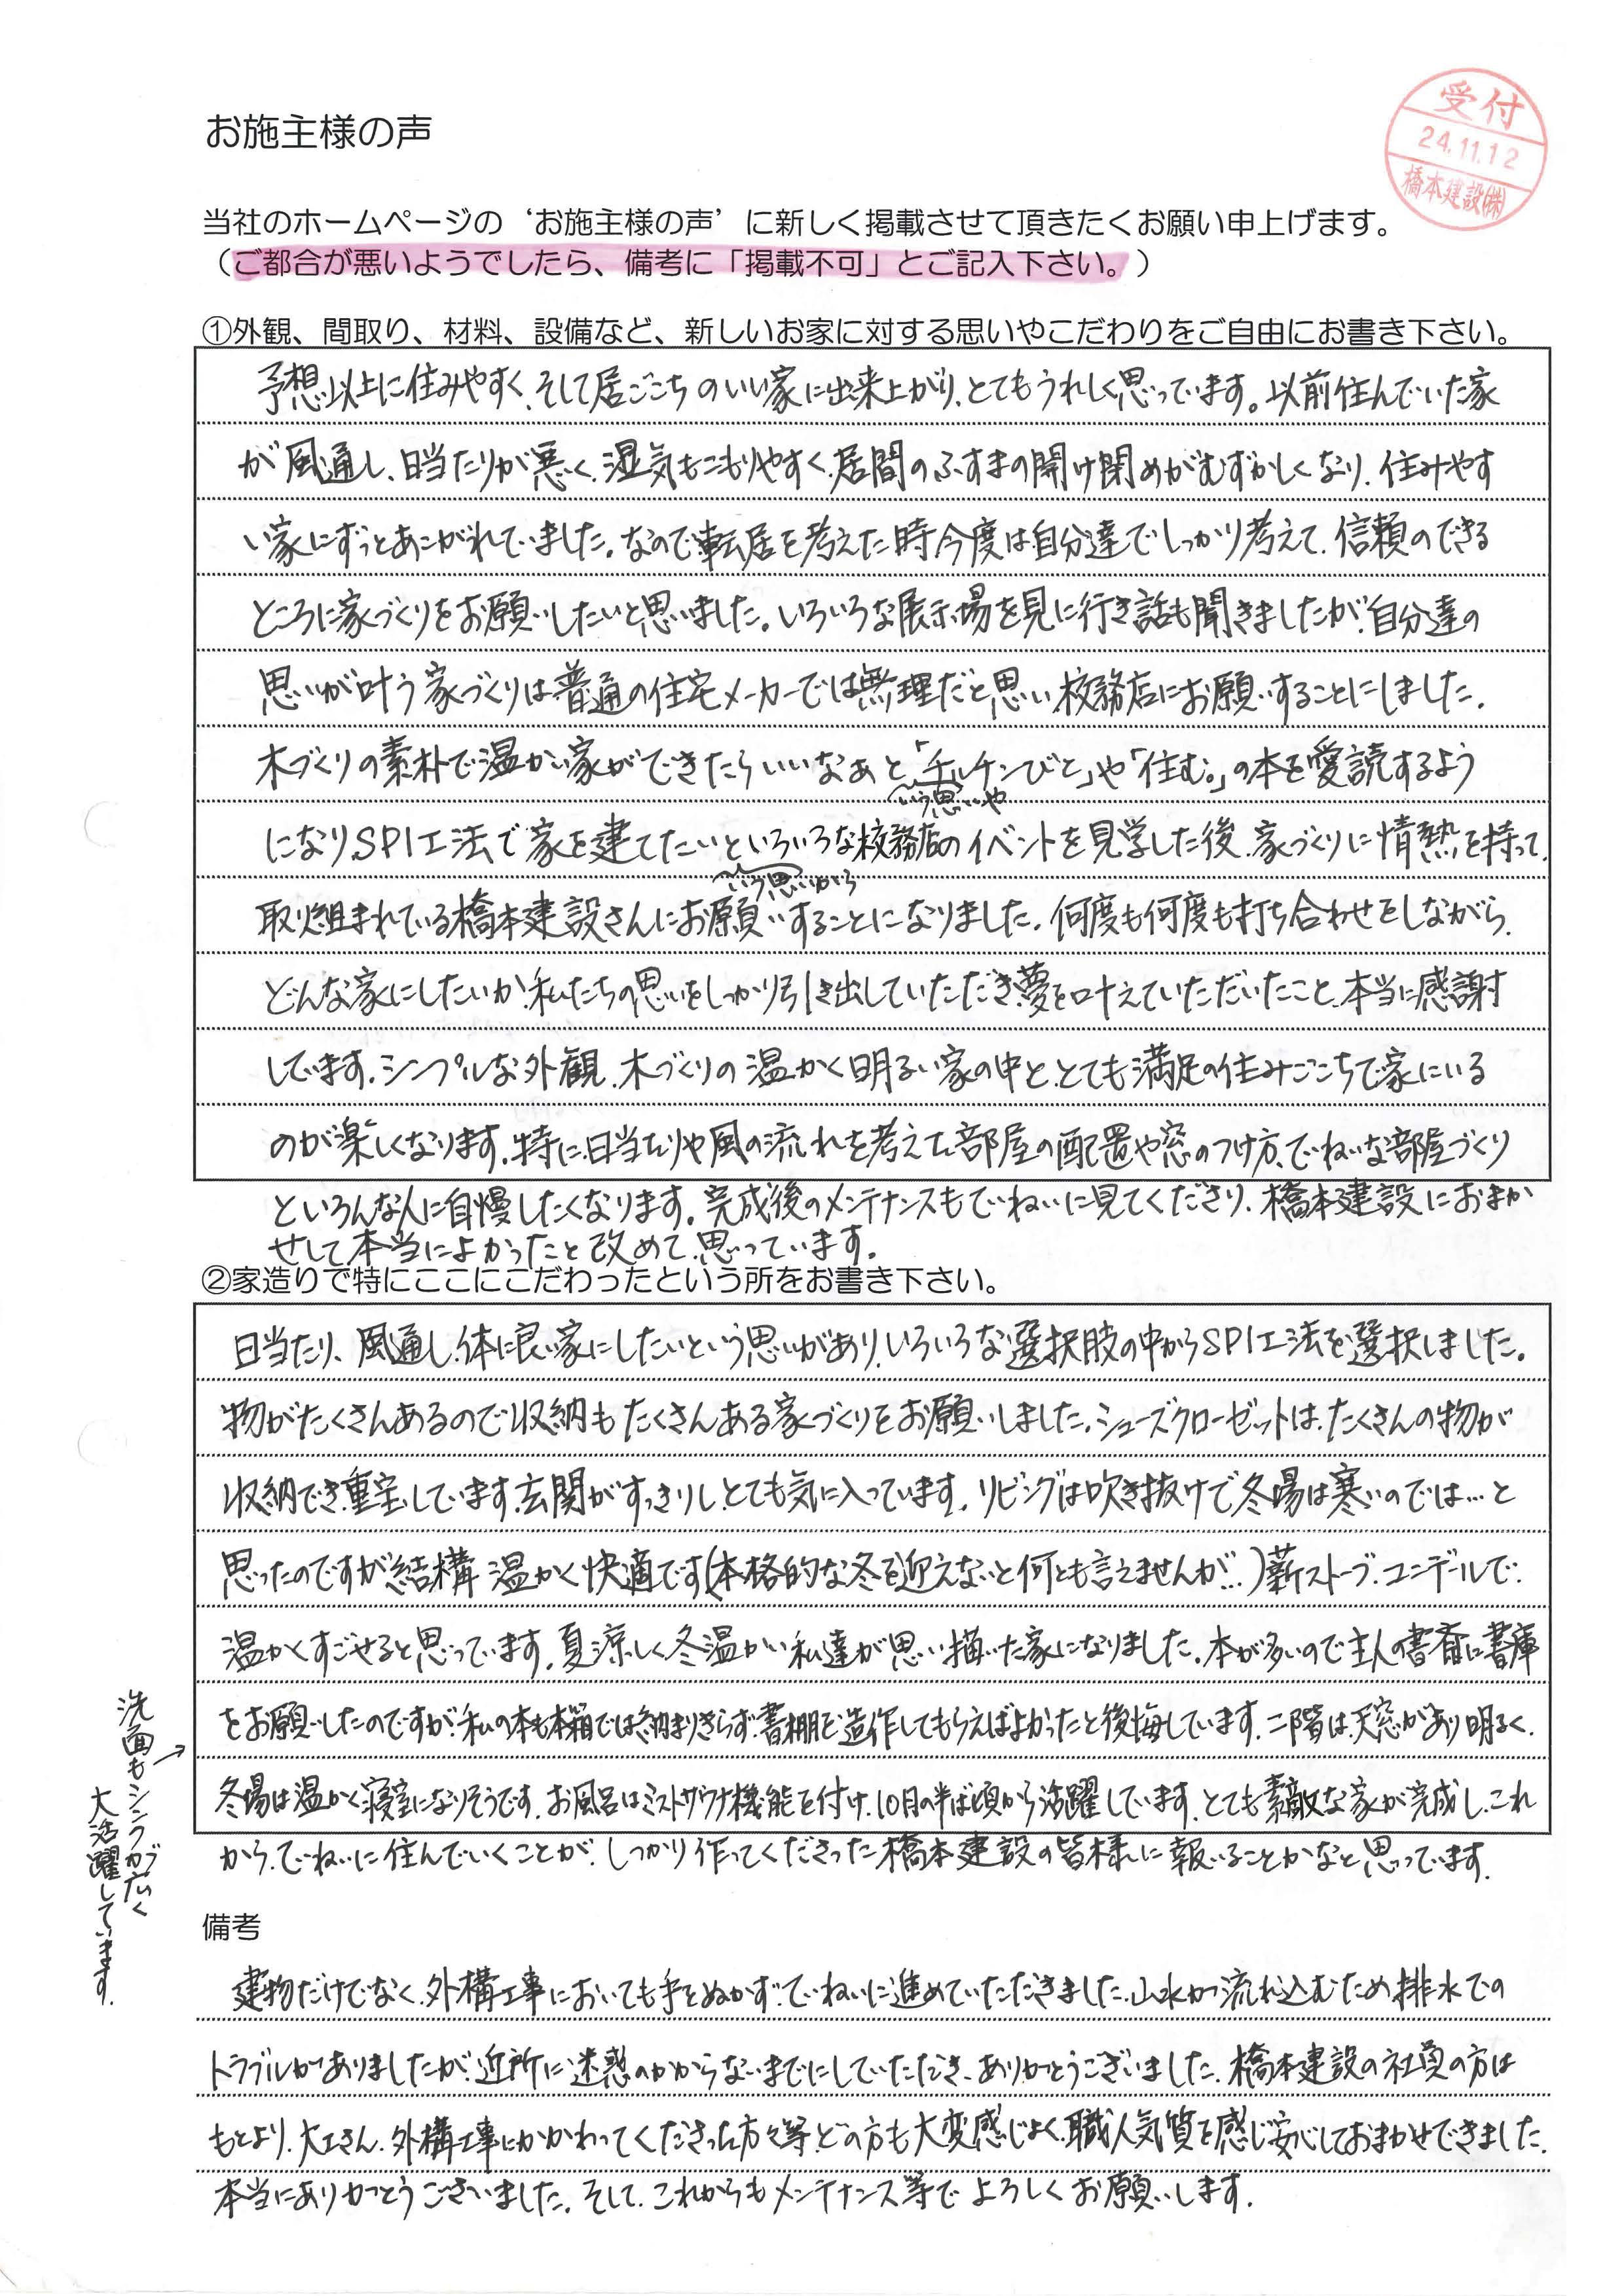 受付
24.11.12
橋本建設㈱
お施主様の声
当社のホームページの‘お施主様の声’に新しく掲載させて頂きたくお願い申上げます。
（ご都合が悪いようでしたら、備考に「掲載不可」とご記入下さい。）
①外観、間取り、材料、設備など、新しいお家に対する思いやこだわりをご自由にお書き下さい。
予想以上に住みやすく、そして居ごこちのいい家に出来上がり、とてもうれしく思っています。以前住んでいた家
が風通し、日当たりが悪く、湿気もこもりやすく、居間のふすまの開け閉めがむずかしくなり、住みやす
い家にずっとあこがれていました。なので転居を考えた時今度は自分達でしっかり考えて、信頼のできる
ところに家づくりをお願いしたいと思いました。いろいろな展示場を見に行き話も聞きましたが、自分達の
思いが叶う家づくりは普通の住宅メーカーでは無理だと思い校務店にお願いすることにしました。
木づくりの素朴で温かい家ができたらいいなあと「チルチンびと」や「住む。」の本を愛読するよう
という思いや
になり、SPI工法で家を建てたいといろいろな校務店のイベントを見学した後、家づくりに情熱を持って
という思いから
取り組まれている橋本建設さんにお願いすることになりました。何度も何度も打ち合わせをしながら、
どんな家にしたいか、私たちの思いをしっかり引き出していただき、夢を叶えていただいたこと、本当に感謝
しています。シンプルな外観、木づくりの温かく明るい家の中と、とても満足の住みごこちで家にいる
のが楽しくなります。特に、日当たりや風の流れを考えた部屋の配置や窓のつけ方、ていねいな部屋づくり
といろんな人に自慢したくなります。完成後のメンテナンスもていねいに見てくださり、橋本建設におまか
せして、本当によかったと改めて思っています。
②家造りで特にここにこだわったという所をお書き下さい。
日当たり、風通し、体に良い家にしたいという思いがあり、いろいろな選択肢の中からSPI工法を選択しました。
物がたくさんあるので収納もたくさんある家づくりをお願いしました。シューズクローゼットは、たくさんの物が
収納でき、重宝しています。玄関がすっきりし、とても気に入っています。リビングは吹き抜けで冬場は寒いのでは…と
思ったのですが結構温かく快適です(本格的な冬を迎えないと何とも言えませんが…)薪ストーブ、コンデールで、
温かくすごせると思っています。夏涼しく冬温かい私達が思い描いた家になりました。本が多いので主人の書斎に書庫
をお願いしたのですが、私の本も本箱では納まりきらず、書棚を造作してもらえばよかったと後悔しています。二階は、天窓があり明るく、
冬場は温かく寝室になりそうです。お風呂はミストサウナ機能を付け、10月の半ば頃から活躍しています。とても素敵な家が完成し、これ
から、ていねいに住んでいくことが、しっかり作ってくださった橋本建設の皆様に報いることかなと思っています。
洗面もシンクが広く
大活躍しています。
備考
建物だけでなく、外構工事においても手をぬかず、ていねいに進めていただきました。山水が流れ込むため排水での
トラブルがありましたが、近所に迷惑のかからないまでにしていただき、ありがとうございました。橋本建設の社員の方は
もとより、大工さん、外構工事にかかわってくださった方々等、どの方も大変感じよく、職人気質を感じ安心しておまかせできました。
本当にありがとうございました。そして、これからもメンテナンス等でよろしくお願いします。